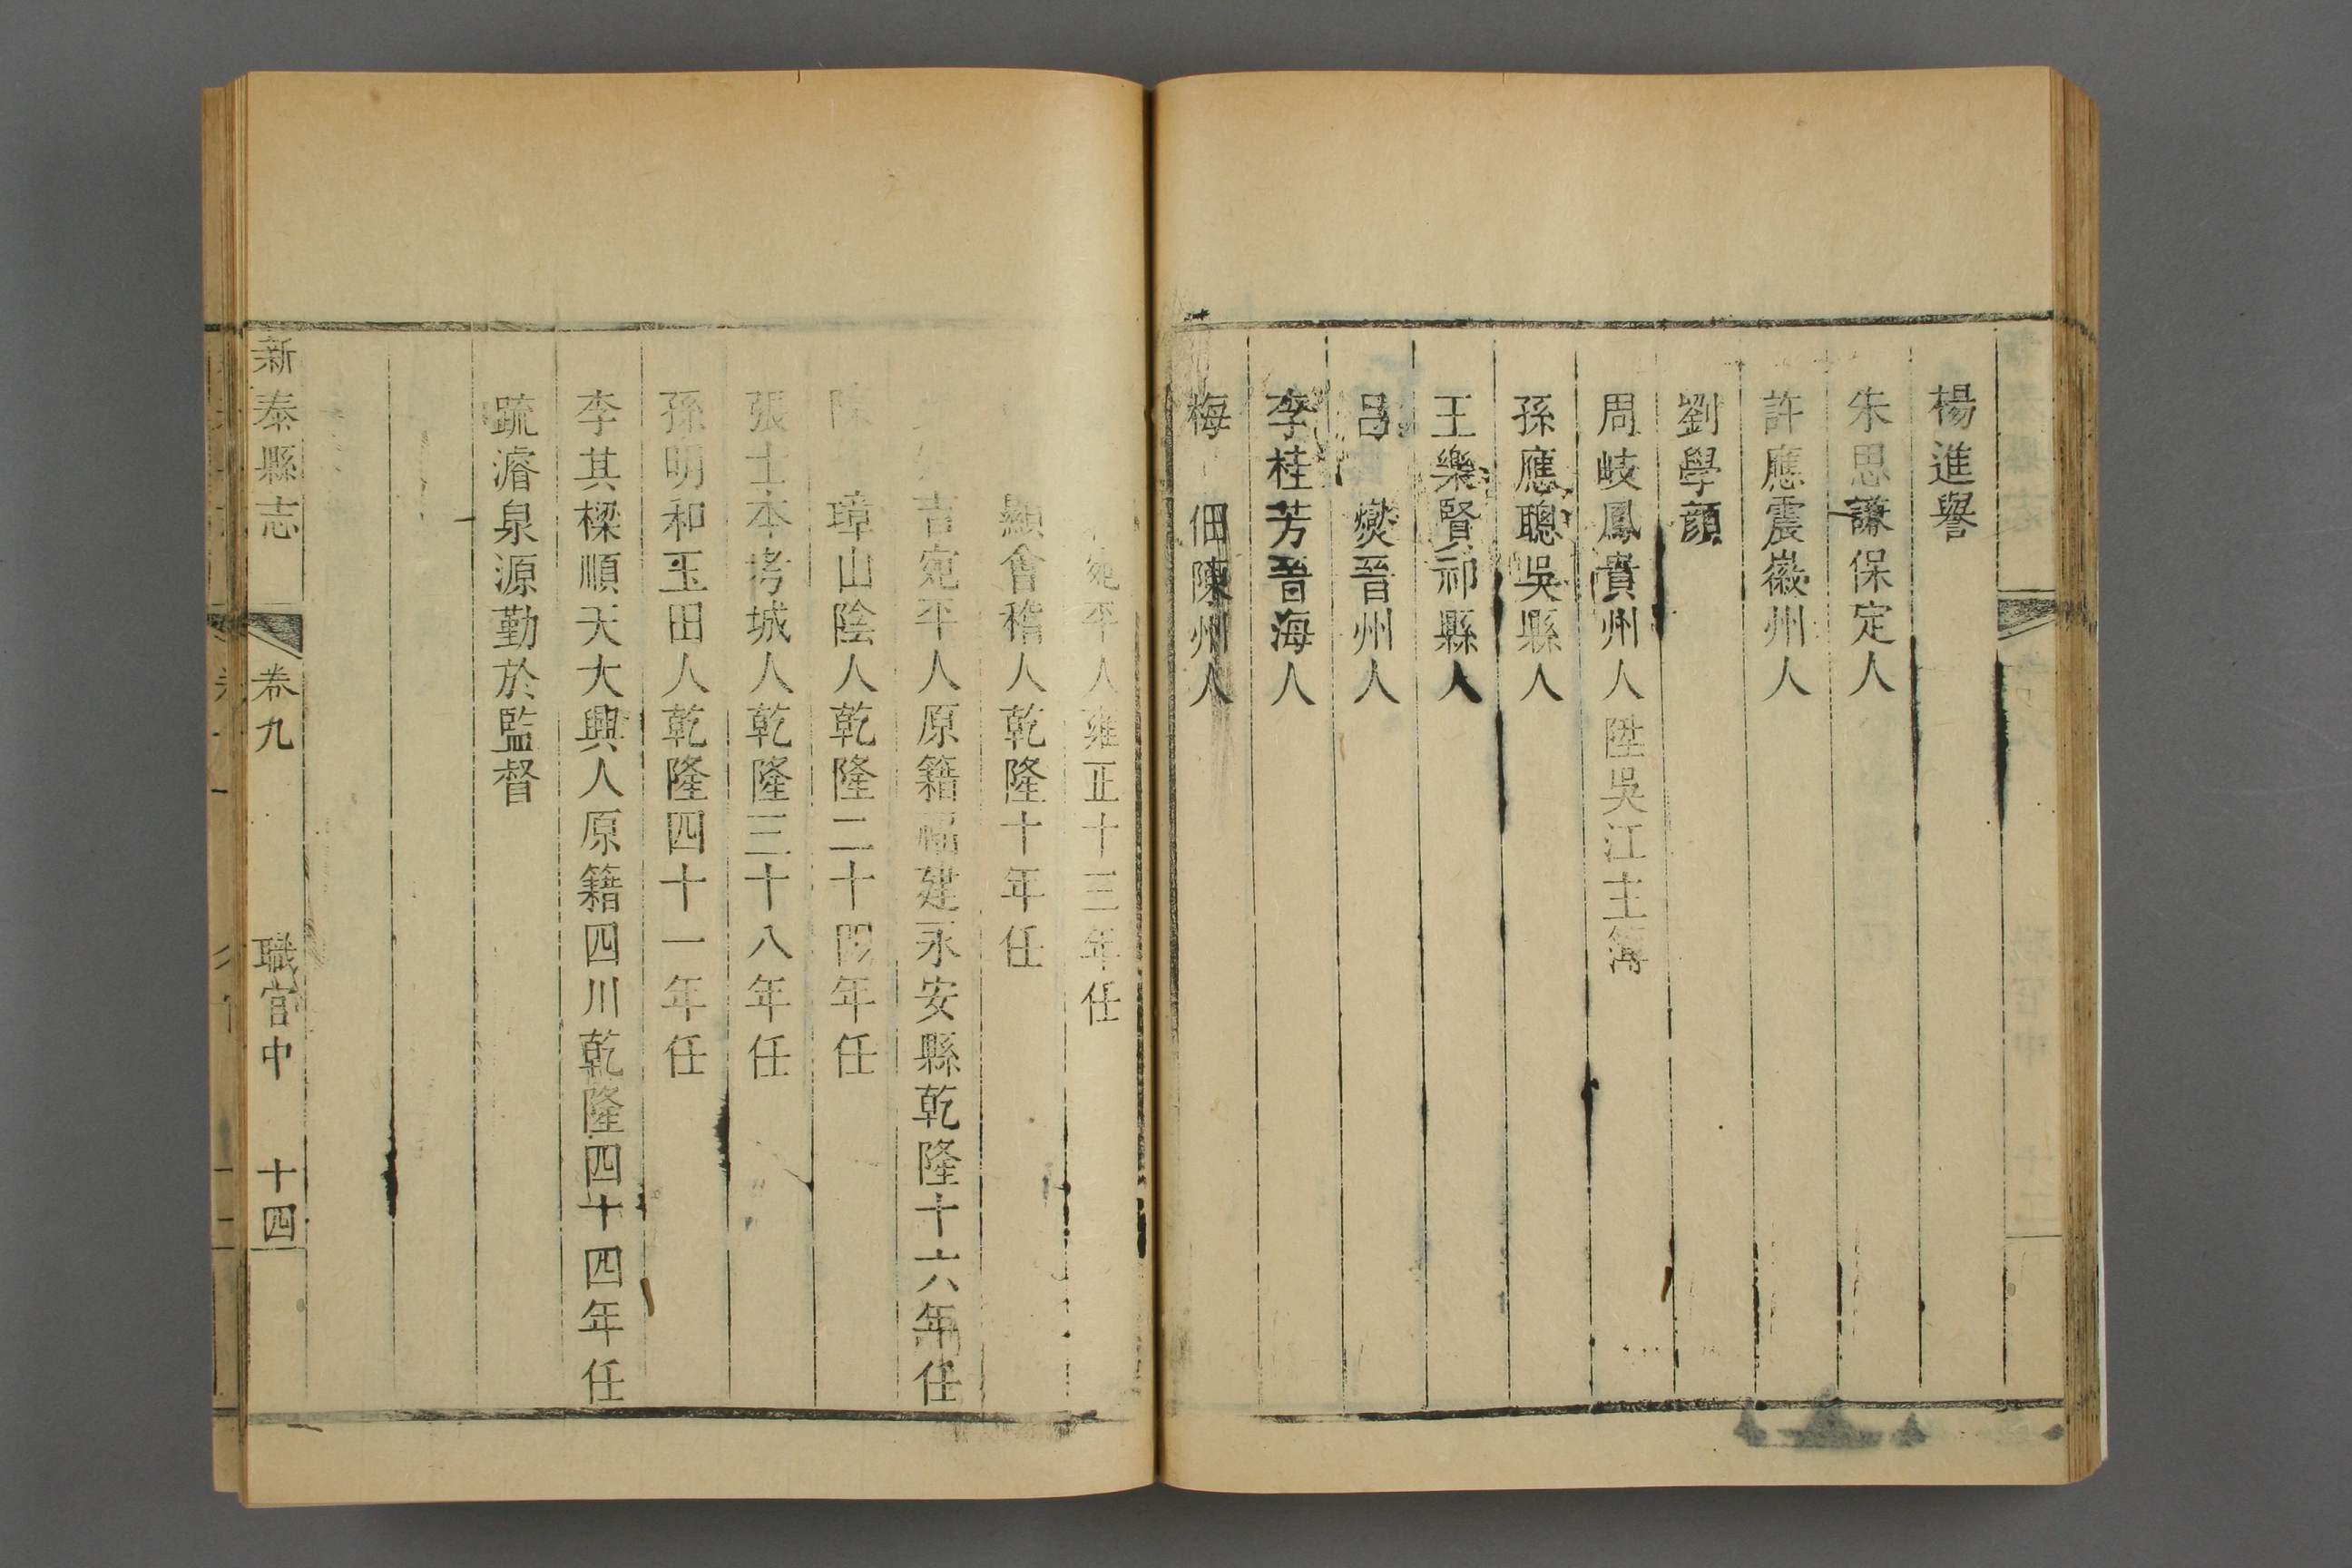 楊進譽
朱思謙保定人
許應震徽州人
劉學顔
周岐鳳貴州人陞吳江主簿
孫應聰吳縣人
王樂賢祁縣人
呂爕晉州人
李桂芳晉海人
梅佃陳州人
宛平人雍正十三年任
顯會稽人乾隆十年任
吉宛平人原籍福建永安縣乾隆十六年任
璋山陰人乾隆二十四年任
張士本考城人乾隆三十八年任
孫明和玉田人乾隆四十一年任
李其樑順天大興人原籍四川乾隆四十四年任
疏濬泉源勤於監督
新泰縣志 卷九 職官中 十四